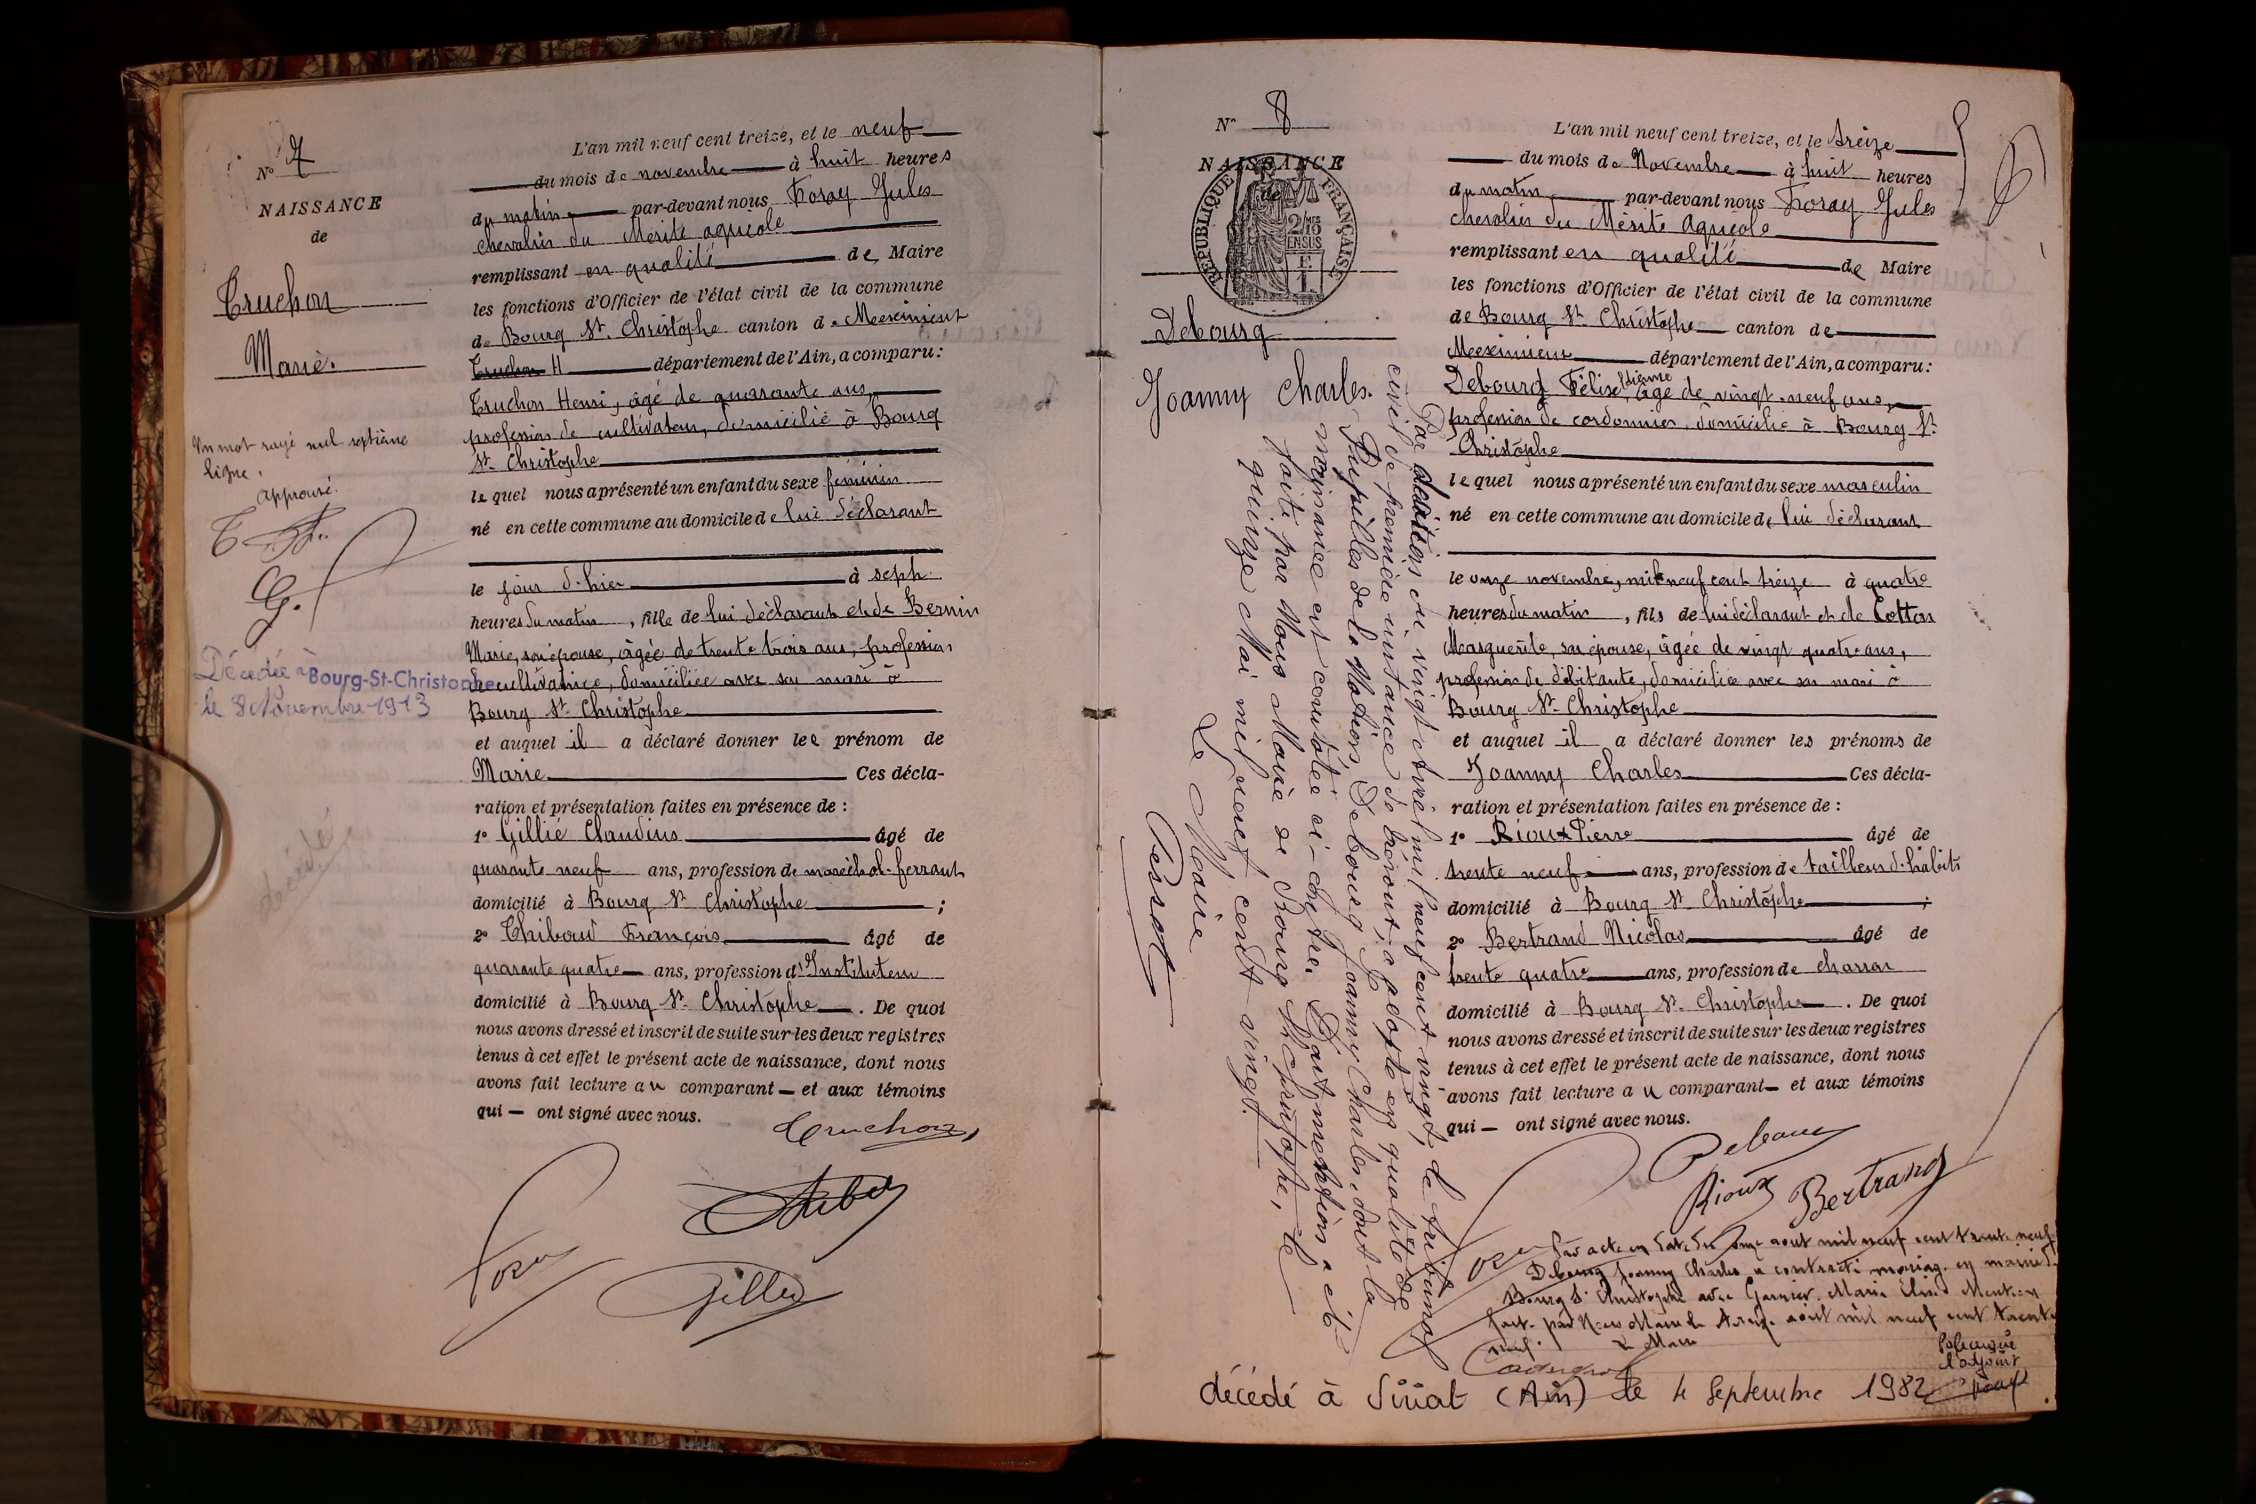 N° 7
NAISSANCE
de
Truchon
Marie.
Un mot rayé nul septième
ligne.
approuvé.
Décédée à Bourg-St-Christophe
le 8 Novembre 1913
décédé
L'an mil neuf cent treize, et le neuf
du mois de novembre à huit heures
du matin, par-devant nous Foray Jules
chevalier du Mérite agricole
remplissant en qualité de Maire
les fonctions d'Officier de l'état civil de la commune
de Bourg St. Christophe canton de Meximieux
Truchon H département de l'Ain, a comparu:
Truchon Henri, âgé de quarante ans,
profession de cultivateur, domicilié à Bourg
St. Christophe
lequel nous a présenté un enfant du sexe féminin
né en cette commune au domicile de lui déclarant
le jour d'hier à sept
heures du matin, fille de lui déclarant et de Bernin
Marie, son épouse, âgée de trente trois ans, profession
de cultivatrice, domiciliée avec son mari à
Bourg St. Christophe
et auquel il a déclaré donner le prénom de
Marie Ces décla-
ration et présentation faites en présence de :
1° Gillié Claudius âgé de
quarante neuf ans, profession de maréchal-ferrant
domicilié à Bourg St Christophe ;
2° Thibaud François âgé de
quarante quatre ans, profession d'Instituteur
domicilié à Bourg St. Christophe. De quoi
nous avons dressé et inscrit de suite sur les deux registres
tenus à cet effet le présent acte de naissance, dont nous
avons fait lecture au comparant et aux témoins
qui ont signé avec nous.
Truchon
Foray
Gillié
N° 8
NAISSANCE
de
RÉPUBLIQUE FRANÇAISE
Debourg
Joanny Charles.
L'an mil neuf cent treize, et le treize
du mois de Novembre à huit heures
du matin, par-devant nous Foray Jules
chevalier du Mérite Agricole
remplissant en qualité de Maire
les fonctions d'Officier de l'état civil de la commune
de Bourg St Christophe canton de
Meximieux département de l'Ain, a comparu:
Debourg Félix Etienne, âgé de vingt-neuf ans,
profession de cordonnier, domicilié à Bourg St.
Christophe
lequel nous a présenté un enfant du sexe masculin
né en cette commune au domicile de lui déclarant
le onze novembre, mil neuf cent treize à quatre
heures du matin, fils de lui déclarant et de Cotton
Marguerite, son épouse, âgée de vingt quatre ans,
profession de débitante, domiciliée avec son mari à
Bourg St. Christophe
et auquel il a déclaré donner les prénoms de
Joanny Charles Ces décla-
ration et présentation faites en présence de :
1° Rioux Pierre âgé de
trente neuf ans, profession de tailleur d'habits
domicilié à Bourg St Christophe ;
2° Bertrand Nicolas âgé de
trente quatre ans, profession de charron
domicilié à Bourg St. Christophe. De quoi
nous avons dressé et inscrit de suite sur les deux registres
tenus à cet effet le présent acte de naissance, dont nous
avons fait lecture au comparant et aux témoins
qui ont signé avec nous.
Debourg
Rioux Bertrand
Foray
Par décision du vingt Avril mil neuf cent vingt, le tribunal
civil de première instance de Trévoux, a adopté en qualité de
Pupilles de la Nation, Debourg Joanny Charles, dont la
naissance est constatée ci-contre. Dont mention a été
faite par Nous Maire de Bourg St Christophe, le
quinze Mai mil neuf cent vingt.
Le Maire
Par acte en date du onze août mil neuf cent trente neuf
Debourg Joanny Charles a contracté mariage en mairie de
Bourg St Christophe avec Garnier Marie Elise Mention
faite par Nous Maire le treize août mil neuf cent trente
neuf. Le Maire
l'adjoint
décédé à Viriat (Ain) le 4 Septembre 1982